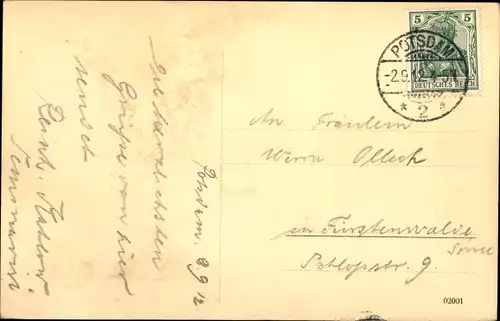 Potsdam. 2.9.12
Die herzlichsten
Grüße von hier
sendet
Seminarist
5 5
DEUTSCHES REICH
POTSDAM
-2.9.12.4-5N
* 2 *
An Fräulein
Werra Olleck
in Fürstenwalde
Spree
Schloßstr. 9.
02001